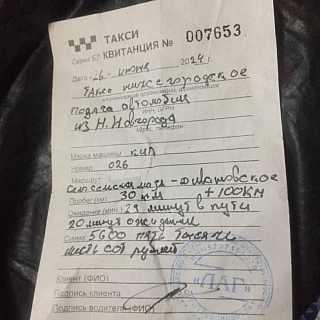 ТАКСИ
Серия БЛ КВИТАНЦИЯ № 007653
Дата «26» июня 2024г.
Такси нижегородское
наименование организации, физлица
Подача автомобиля
ИНН, ОГРН
из Н.Новгорода
Адрес, телефон
Марка машины КИА
Номер 026
Маршрут:
+100 КМ
Пробег (км) 30 км
Ожидание (мин.) 29 минут в пути
20 минут ожидания
Сумма 5600 пять тысяч
шесть сот рублей
Клиент (ФИО)
Подпись клиента
Подпись водителя (ФИО)
"ЛАГ"